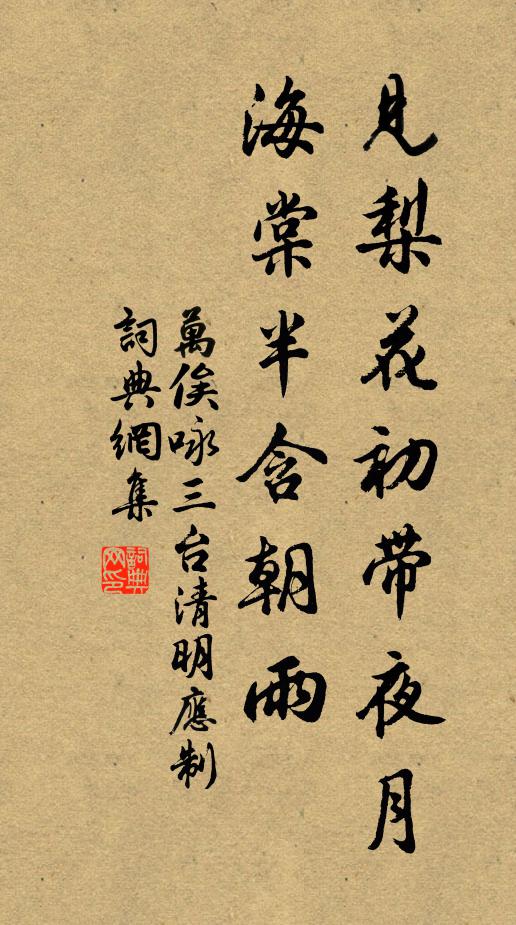 見梨花初带夜月
海棠半含朝雨
萬俟咏三台清明應制
詞典網集
詞典网印